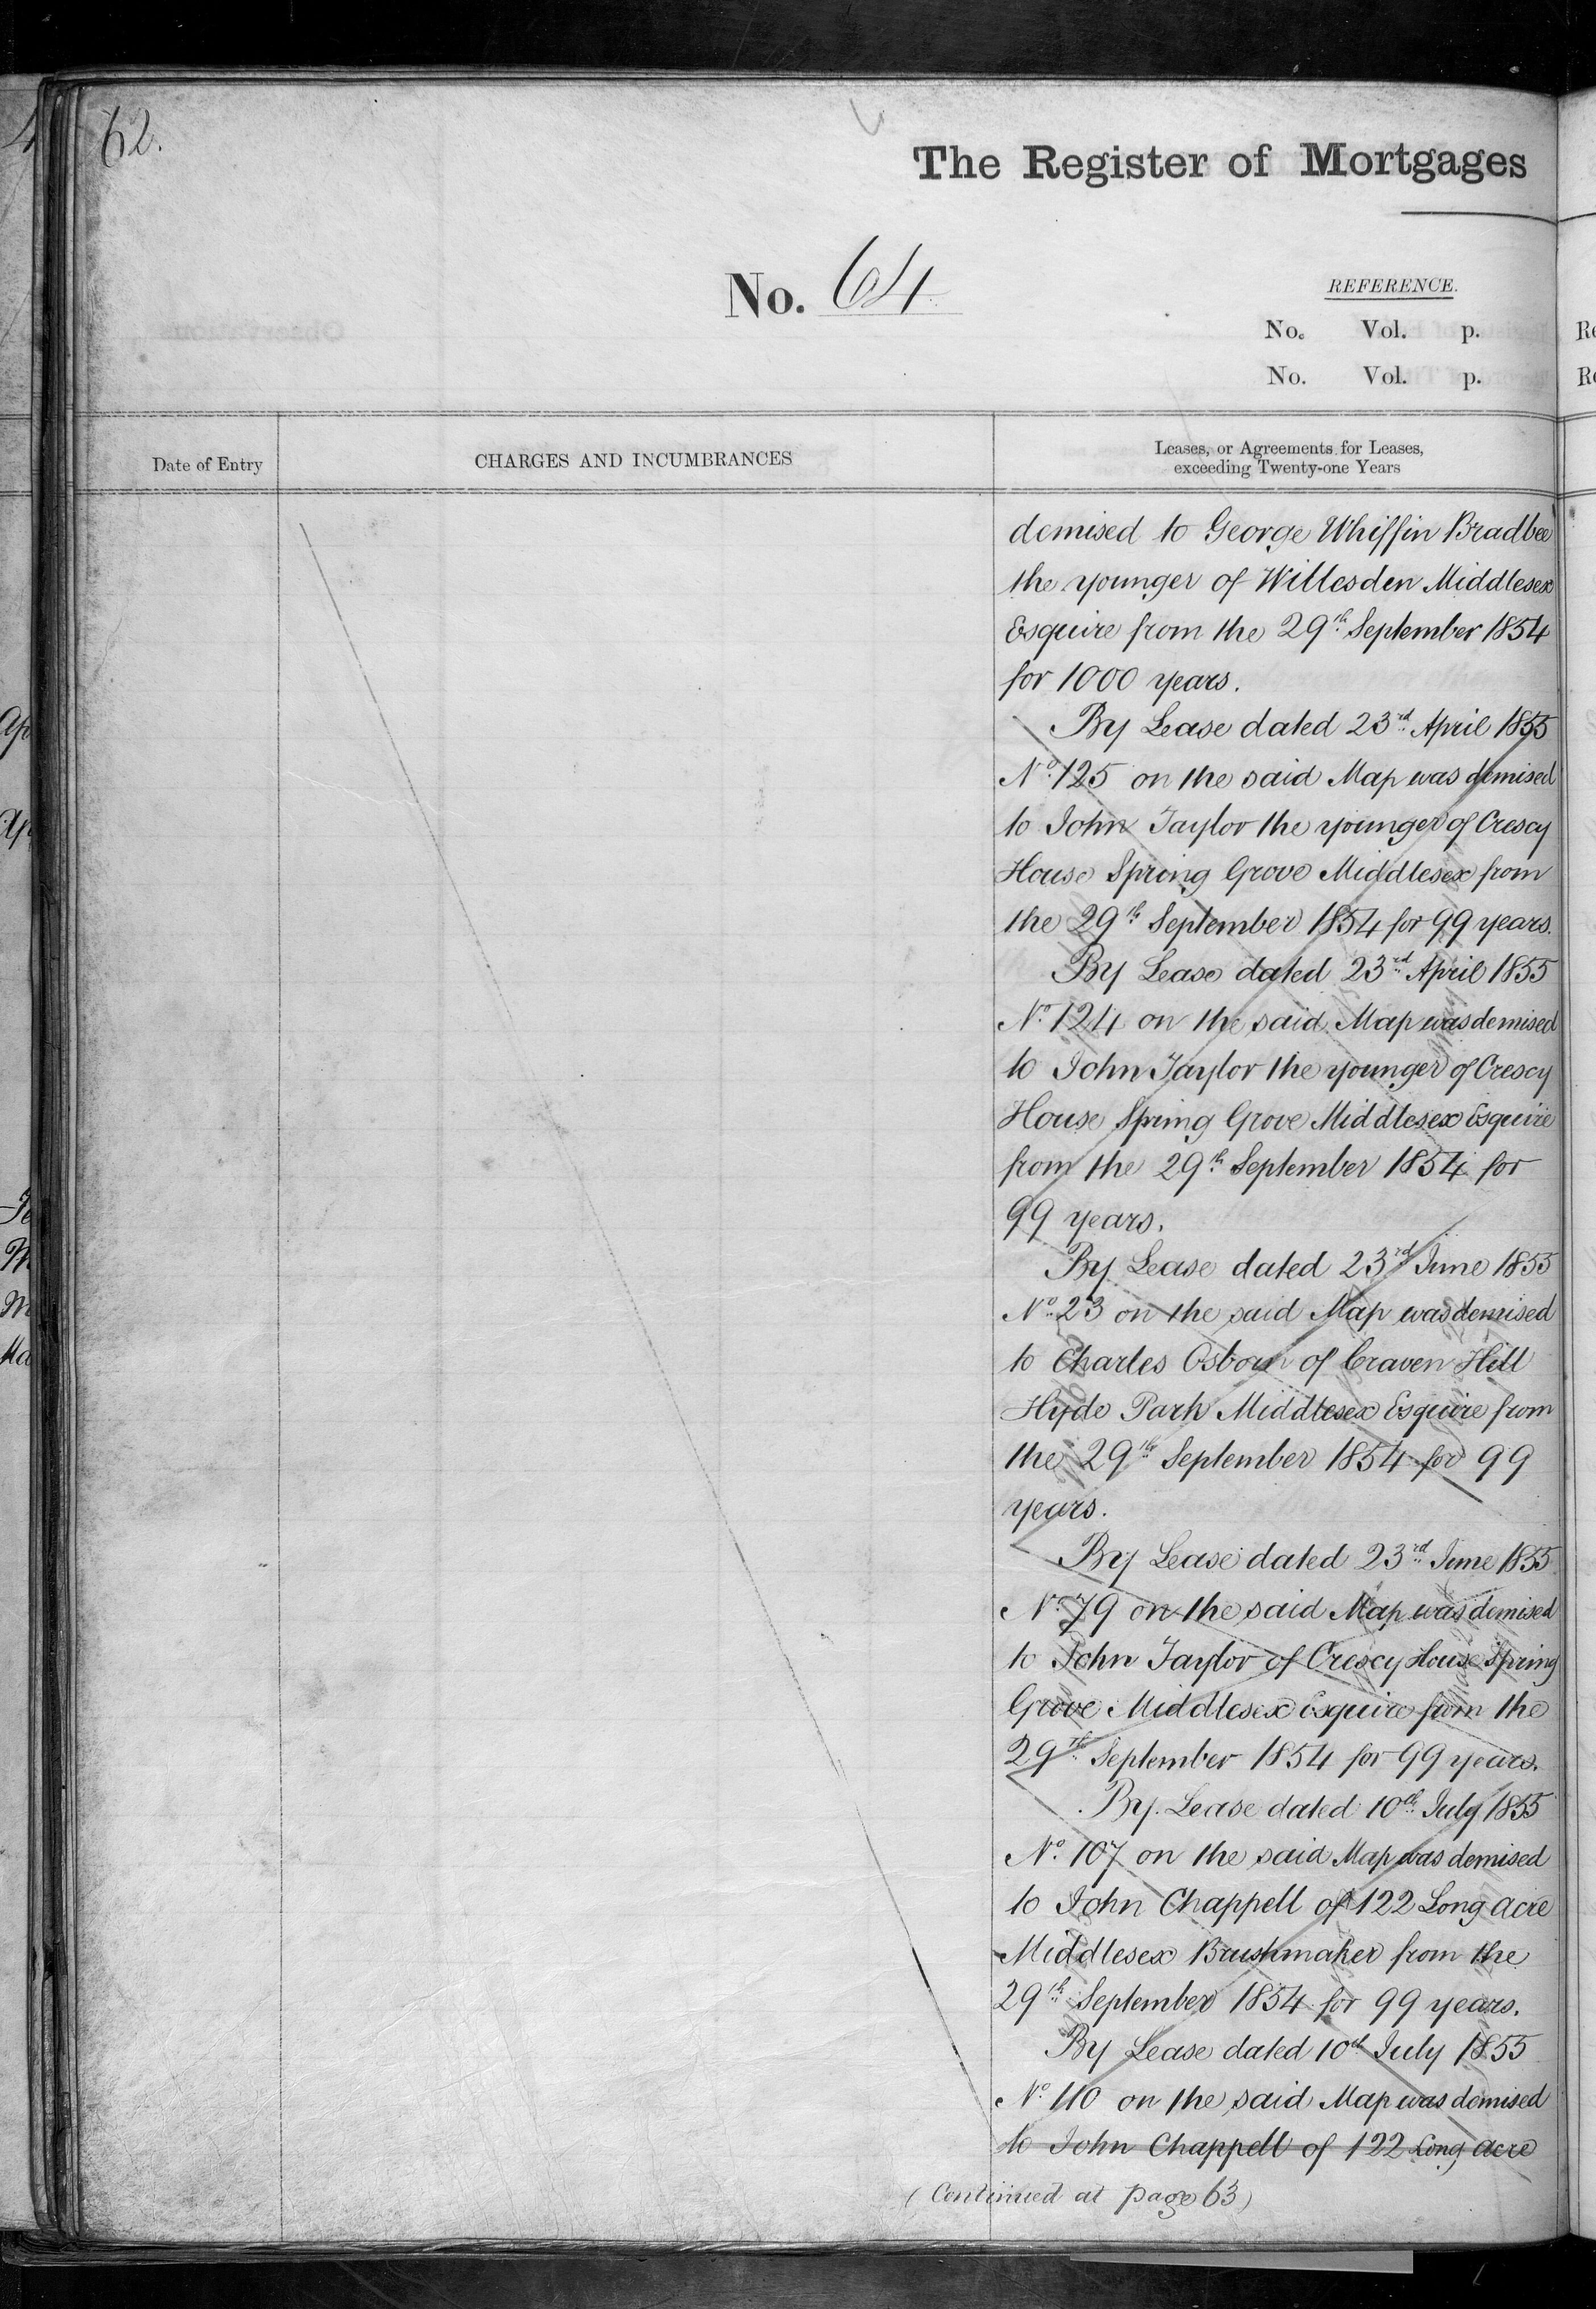 62.
The Register of Mortgages
No. 64
REFERENCE.
No. Vol. p.
No. Vol. p.
Date of Entry
CHARGES AND INCUMBRANCES
Leases, or Agreements for Leases,
exceeding Twenty-one Years
demised to George Whiffin Bradbee
the younger of Willesden Middlesex
Esquire from the 29th September 1854
for 1000 years.
By Lease dated 23rd April 1855
No. 125 on the said Map was demised
to John Taylor the younger of Crescy
House Spring Grove Middlesex from
the 29th September 1854 for 99 years.
By Lease dated 23rd April 1855
No. 124 on the said Map was demised
to John Taylor the younger of Crescy
House Spring Grove Middlesex Esquire
from the 29th September 1854 for
99 years.
By Lease dated 23rd June 1855
No. 23 on the said Map was demised
to Charles Osborn of Craven Hill
Hyde Park Middlesex Esquire from
the 29th September 1854 for 99
years.
By Lease dated 23rd June 1855
No. 79 on the said Map was demised
to John Taylor of Crescy House Spring
Grove Middlesex Esquire from the
29th September 1854 for 99 years.
By Lease dated 10th July 1855
No. 107 on the said Map was demised
to John Chappell of 122 Long acre
Middlesex Brushmaker from the
29th September 1854 for 99 years.
By Lease dated 10th July 1855
No. 110 on the said Map was demised
to John Chappell of 122 Long acre
(Continued at page 63)